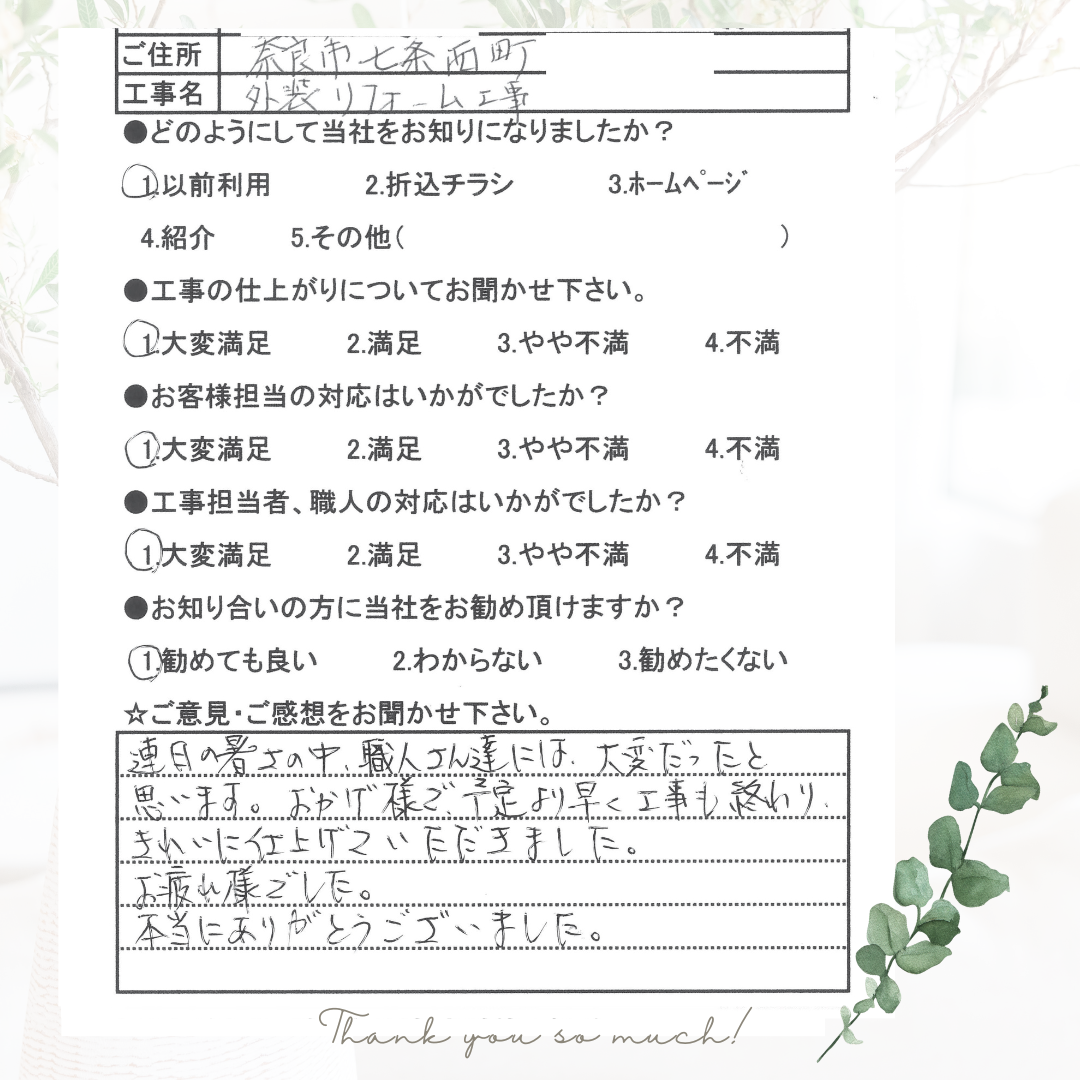 ご住所 奈良市七条西町
工事名 外装リフォーム工事
●どのようにして当社をお知りになりましたか？
1.以前利用 2.折込チラシ 3.ﾎｰﾑﾍﾟｰｼﾞ
4.紹介 5.その他( )
●工事の仕上がりについてお聞かせ下さい。
1.大変満足 2.満足 3.やや不満 4.不満
●お客様担当の対応はいかがでしたか？
1.大変満足 2.満足 3.やや不満 4.不満
●工事担当者、職人の対応はいかがでしたか？
1.大変満足 2.満足 3.やや不満 4.不満
●お知り合いの方に当社をお勧め頂けますか？
1.勧めても良い 2.わからない 3.勧めたくない
☆ご意見・ご感想をお聞かせ下さい。
連日の暑さの中、職人さん達には、大変だったと
思います。おかげ様で、予定より早く工事も終わり、
きれいに仕上げていただきました。
お疲れ様でした。
本当にありがとうございました。
Thank you so much!